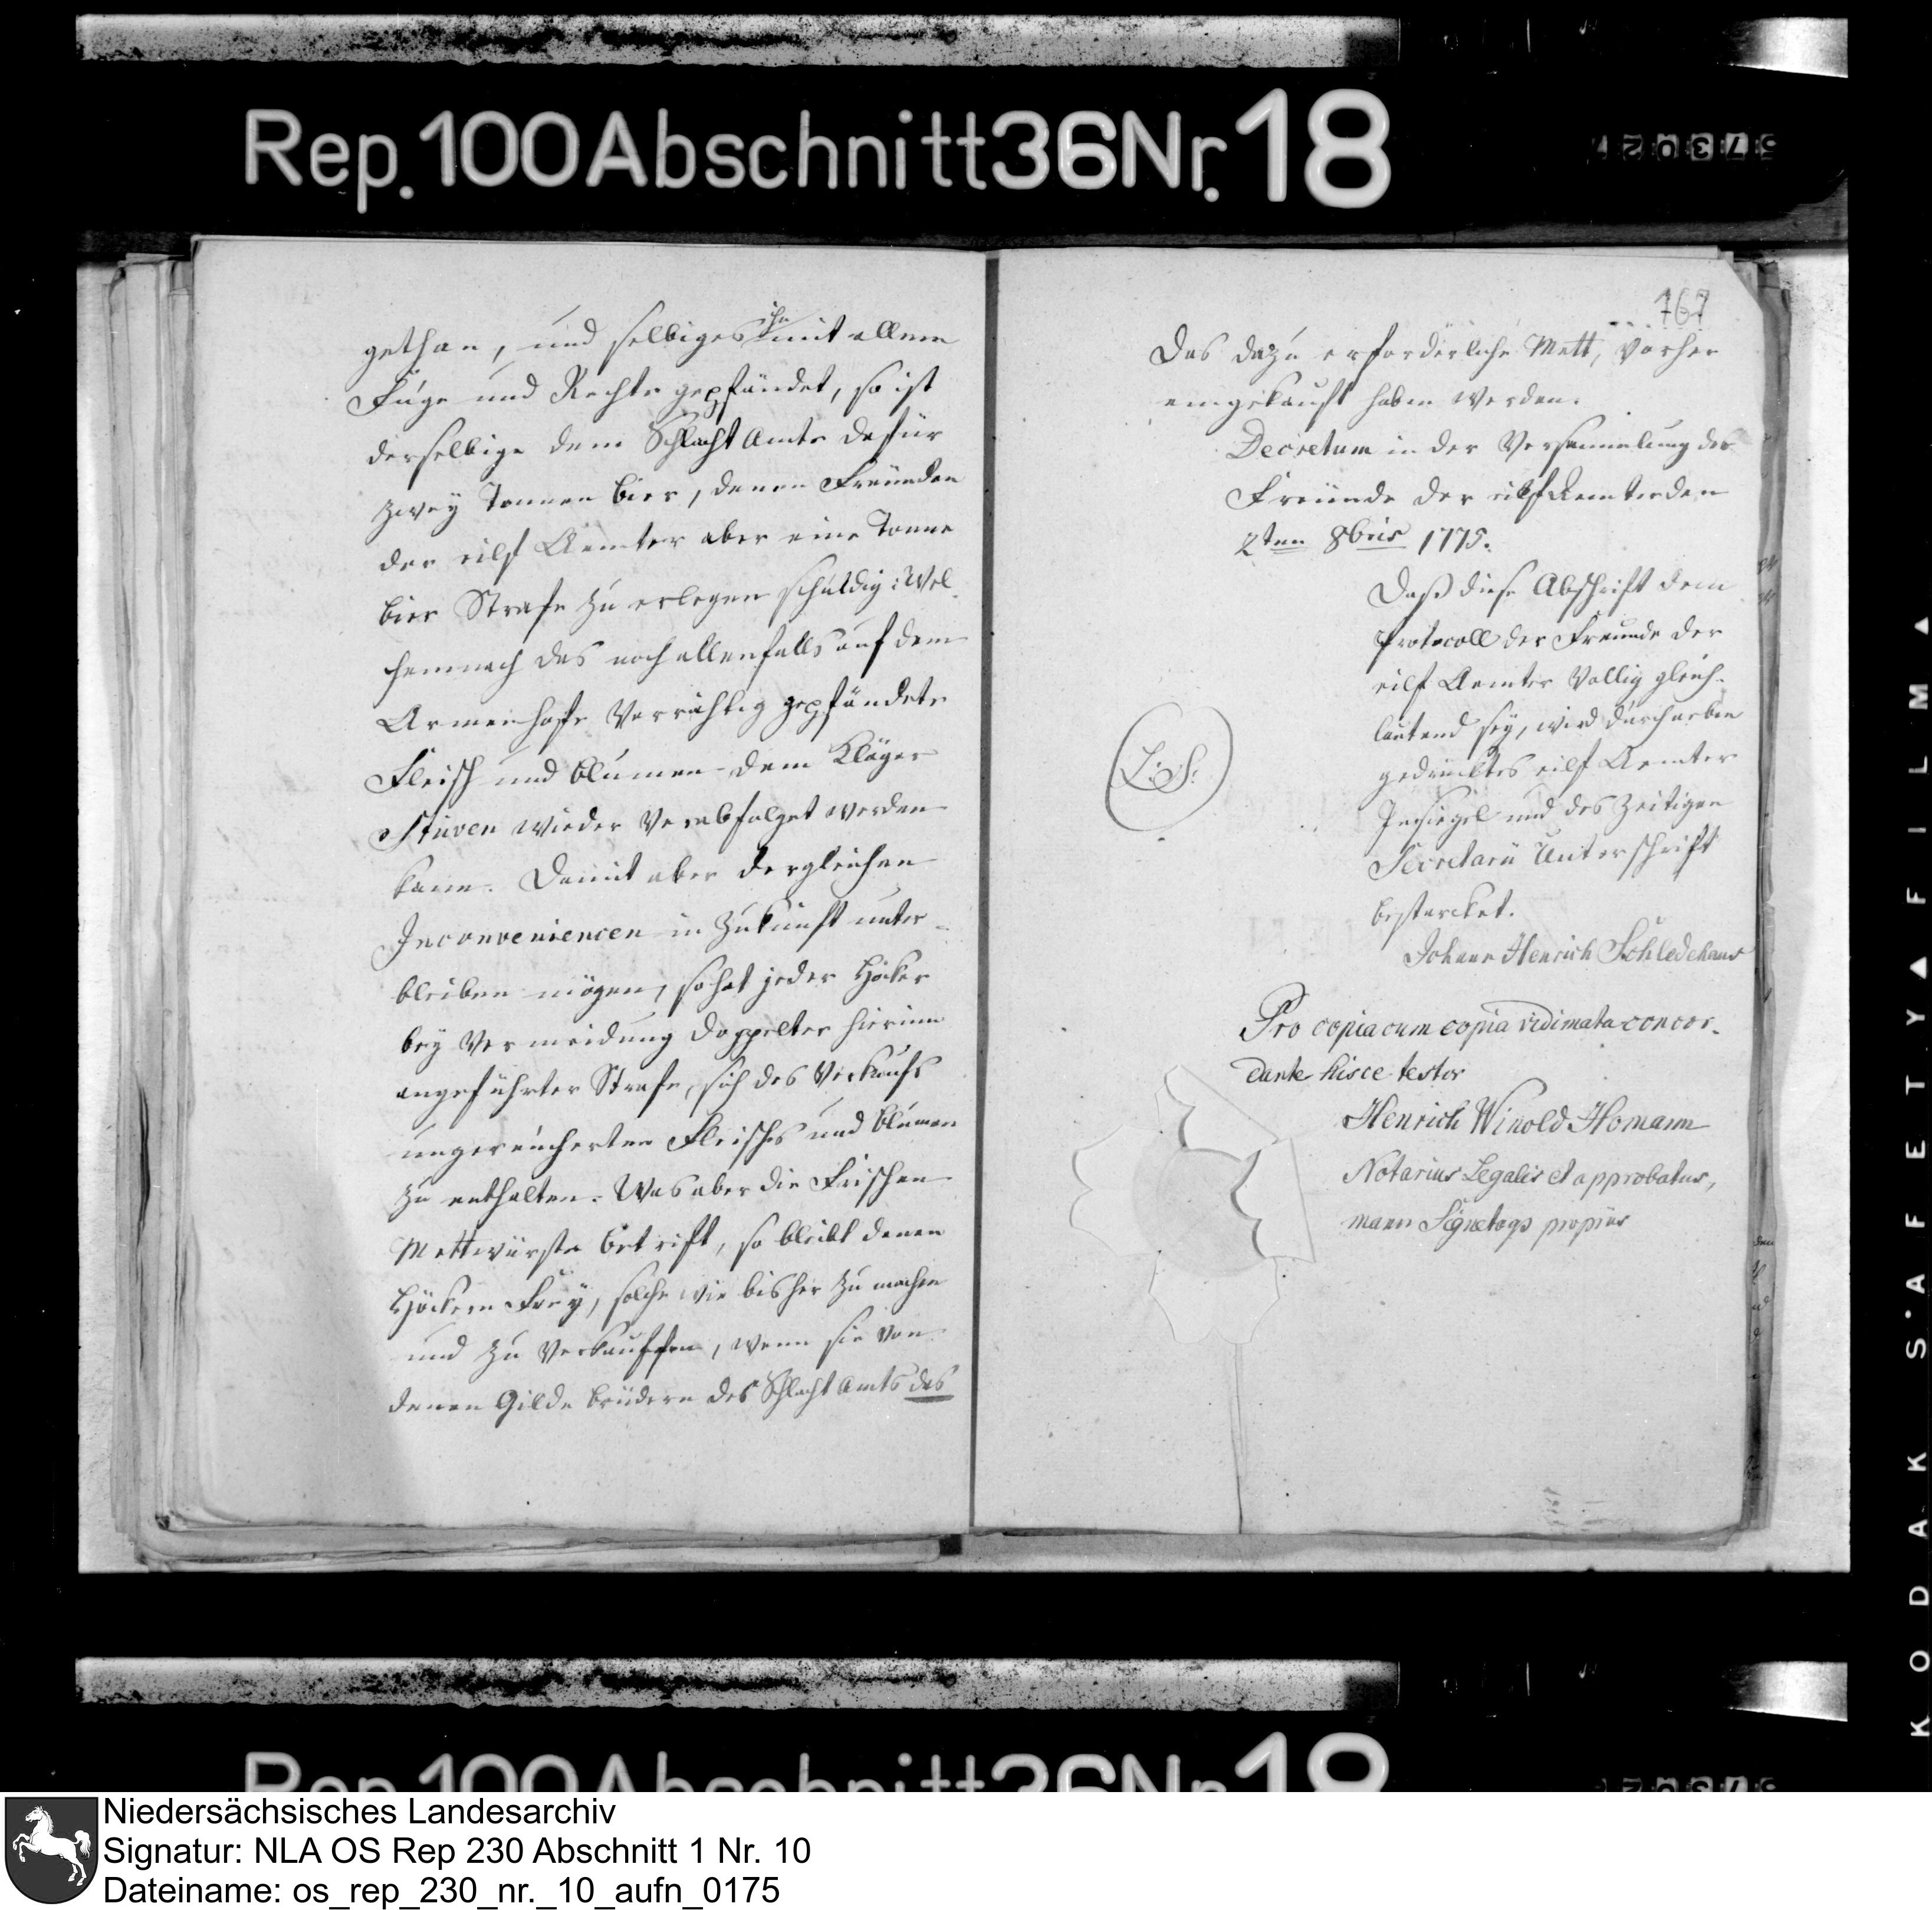 Rep. 100 Abschnitt 36 Nr. 18
gethan, und selbiges ihn mit allem
Fuge und Rechte gepfändet, so ist
derselbige dem Schlacht Amte dafür
zwey Tonnen Bier, denen Freunden
der eilf Aemter aber eine Tonne
Bier Strafe zu erlegen schuldig: Wel-
chemnach das noch allenfalls auf dem
Armenhofe vorräthig gepfändete
Fleisch und Blumen dem Kläger
Stüven wieder verabfolget werden
kann. Damit aber dergleichen
Inconveniencen in Zukunft unter-
bleiben mögen, so hat jeder Höcker
bey Vermeidung doppelter hierinn
angeführter Strafe, sich des Verkaufs
ungereucherten Fleisches und Blumen
zu enthalten. Was aber die Frischen
Mettwürste betrift, so bleibt denen
Höckern Frey, solche wie bisher zu machen
und zu verkauffen, wenn sie von
denen Gilde brüdern des Schlacht Amts das
767
Das dazu erforderliche Mett, vorher
eingekauft haben werden.
Decretum in der Versammlung der
Freunde der eilf Aemter den
2ten 8bris 1775.
Daß diese Abschrift dem
Protocoll der Freunde der
eilf Aemter Vollig gleich-
lautend sey, wird durch neben
gedrucktes eilf Aemter
Insiegel und des Zeitigen
Secretarii Unterschrift
bestarcket.
L. S.
Johann Henrich Schledehaus
Pro copia cum copia vidimata concor-
dante hisce testor
Henrich Winold Homann
Notarius Legalis et approbatus,
manu Signetoqs propiis
KODAK SAFETY FILM
Niedersächsisches Landesarchiv
Signatur: NLA OS Rep 230 Abschnitt 1 Nr. 10
Dateiname: os_rep_230_nr._10_aufn_0175